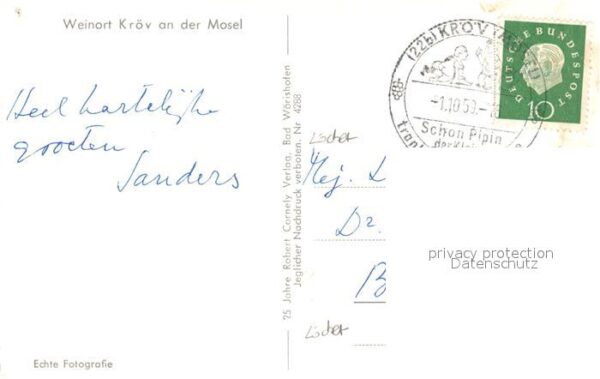 Weinort Kröv an der Mosel
Heel hartelijke
groeten
Sanders
Echte Fotografie
25 Jahre Robert Cornely Verlag, Bad Wörishofen
Jeglicher Nachdruck verboten. Nr 4288
(22b) KRÖV
-1.10.59.-
Schon Pipin
der Kl
trank
DEUTSCHE BUNDESPOST
10
Löcher
Mej. L
Dr.
B
Löcher
privacy protection
Datenschutz